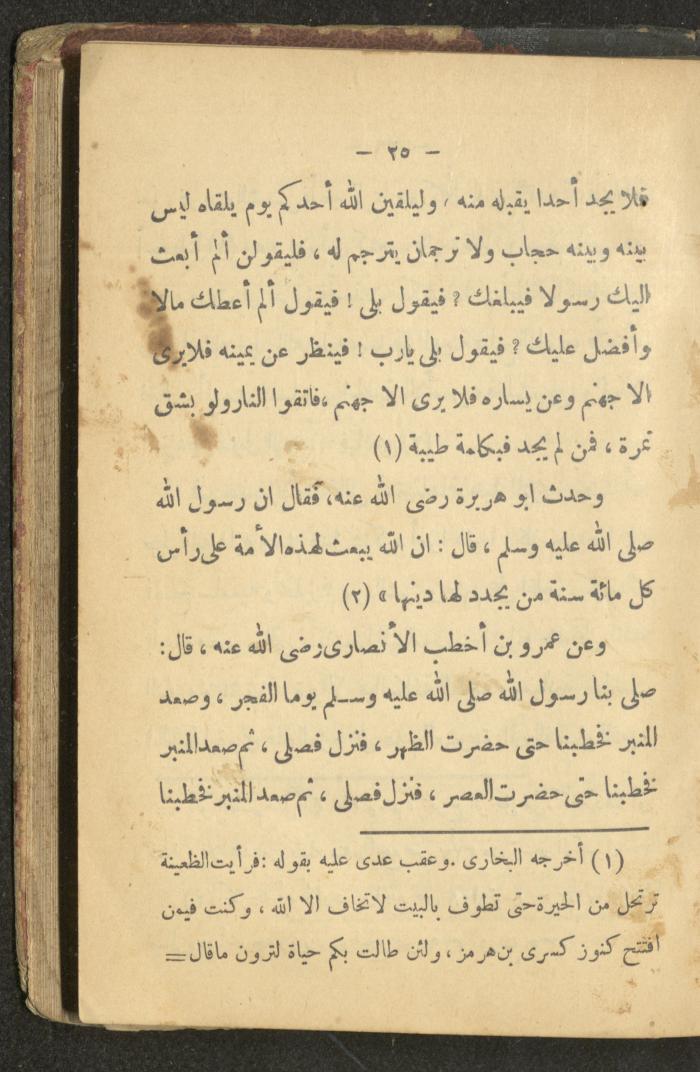 — ٢٥ —
فلا يجد أحدا يقبله منه ، وليلقين الله أحدكم يوم يلقاه ليس
بينه وبينه حجاب ولا ترجمان يترجم له ، فليقولن ألم أبعث
اليك رسولا فيبلغك ? فيقول بلى ! فيقول ألم أعطك مالا
وأفضل عليك ? فيقول بلى يارب ! فينظر عن يمينه فلا يرى
الا جهنم وعن يساره فلا يرى الا جهنم ،فاتقوا النار ولو بشق
تمرة ، فمن لم يجد فبكلمة طيبة (١)
وحدث ابو هريرة رضى الله عنه، فقال ان رسول الله
صلى الله عليه وسلم ، قال : ان الله يبعث لهذه الأمة على رأس
كل مائة سنة من يجدد لها دينها » (٢)
وعن عمرو بن أخطب الأنصارى رضى الله عنه ، قال:
صلى بنا رسول الله صلى الله عليه وسلم يوما الفجر ، وصعد
المنبر فخطبنا حتى حضرت الظهر ، فنزل فصلى ، ثم صعد المنبر
فخطبنا حتى حضرت العصر ، فنزل فصلى ، ثم صعد المنبر فخطبنا
(١) أخرجه البخارى .وعقب عدى عليه بقوله :فرأيت الظعينة
ترتحل من الحيرة حتى تطوف بالبيت لاتخاف الا الله ، وكنت فيمن
افتتح كنوز كسرى بن هرمز ، ولئن طالت بكم حياة لترون ماقال =